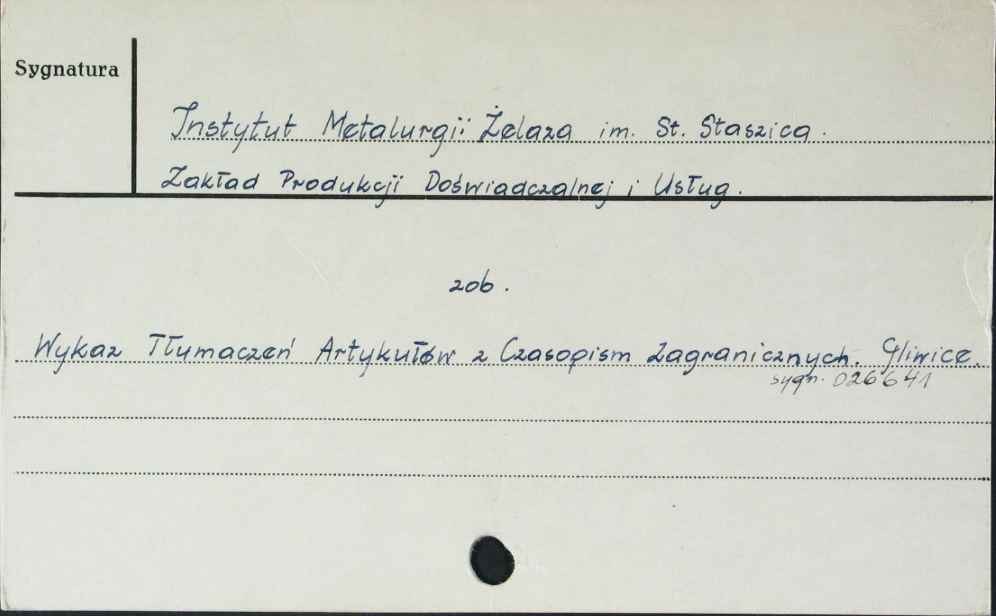 Sygnatura
Instytut Metalurgii Żelaza im. St. Staszica.
Zakład Produkcji Doświadczalnej i Usług.
zob.
Wykaz Tłumaczeń Artykułów z Czasopism Zagranicznych. Gliwice.
sygn. 026641